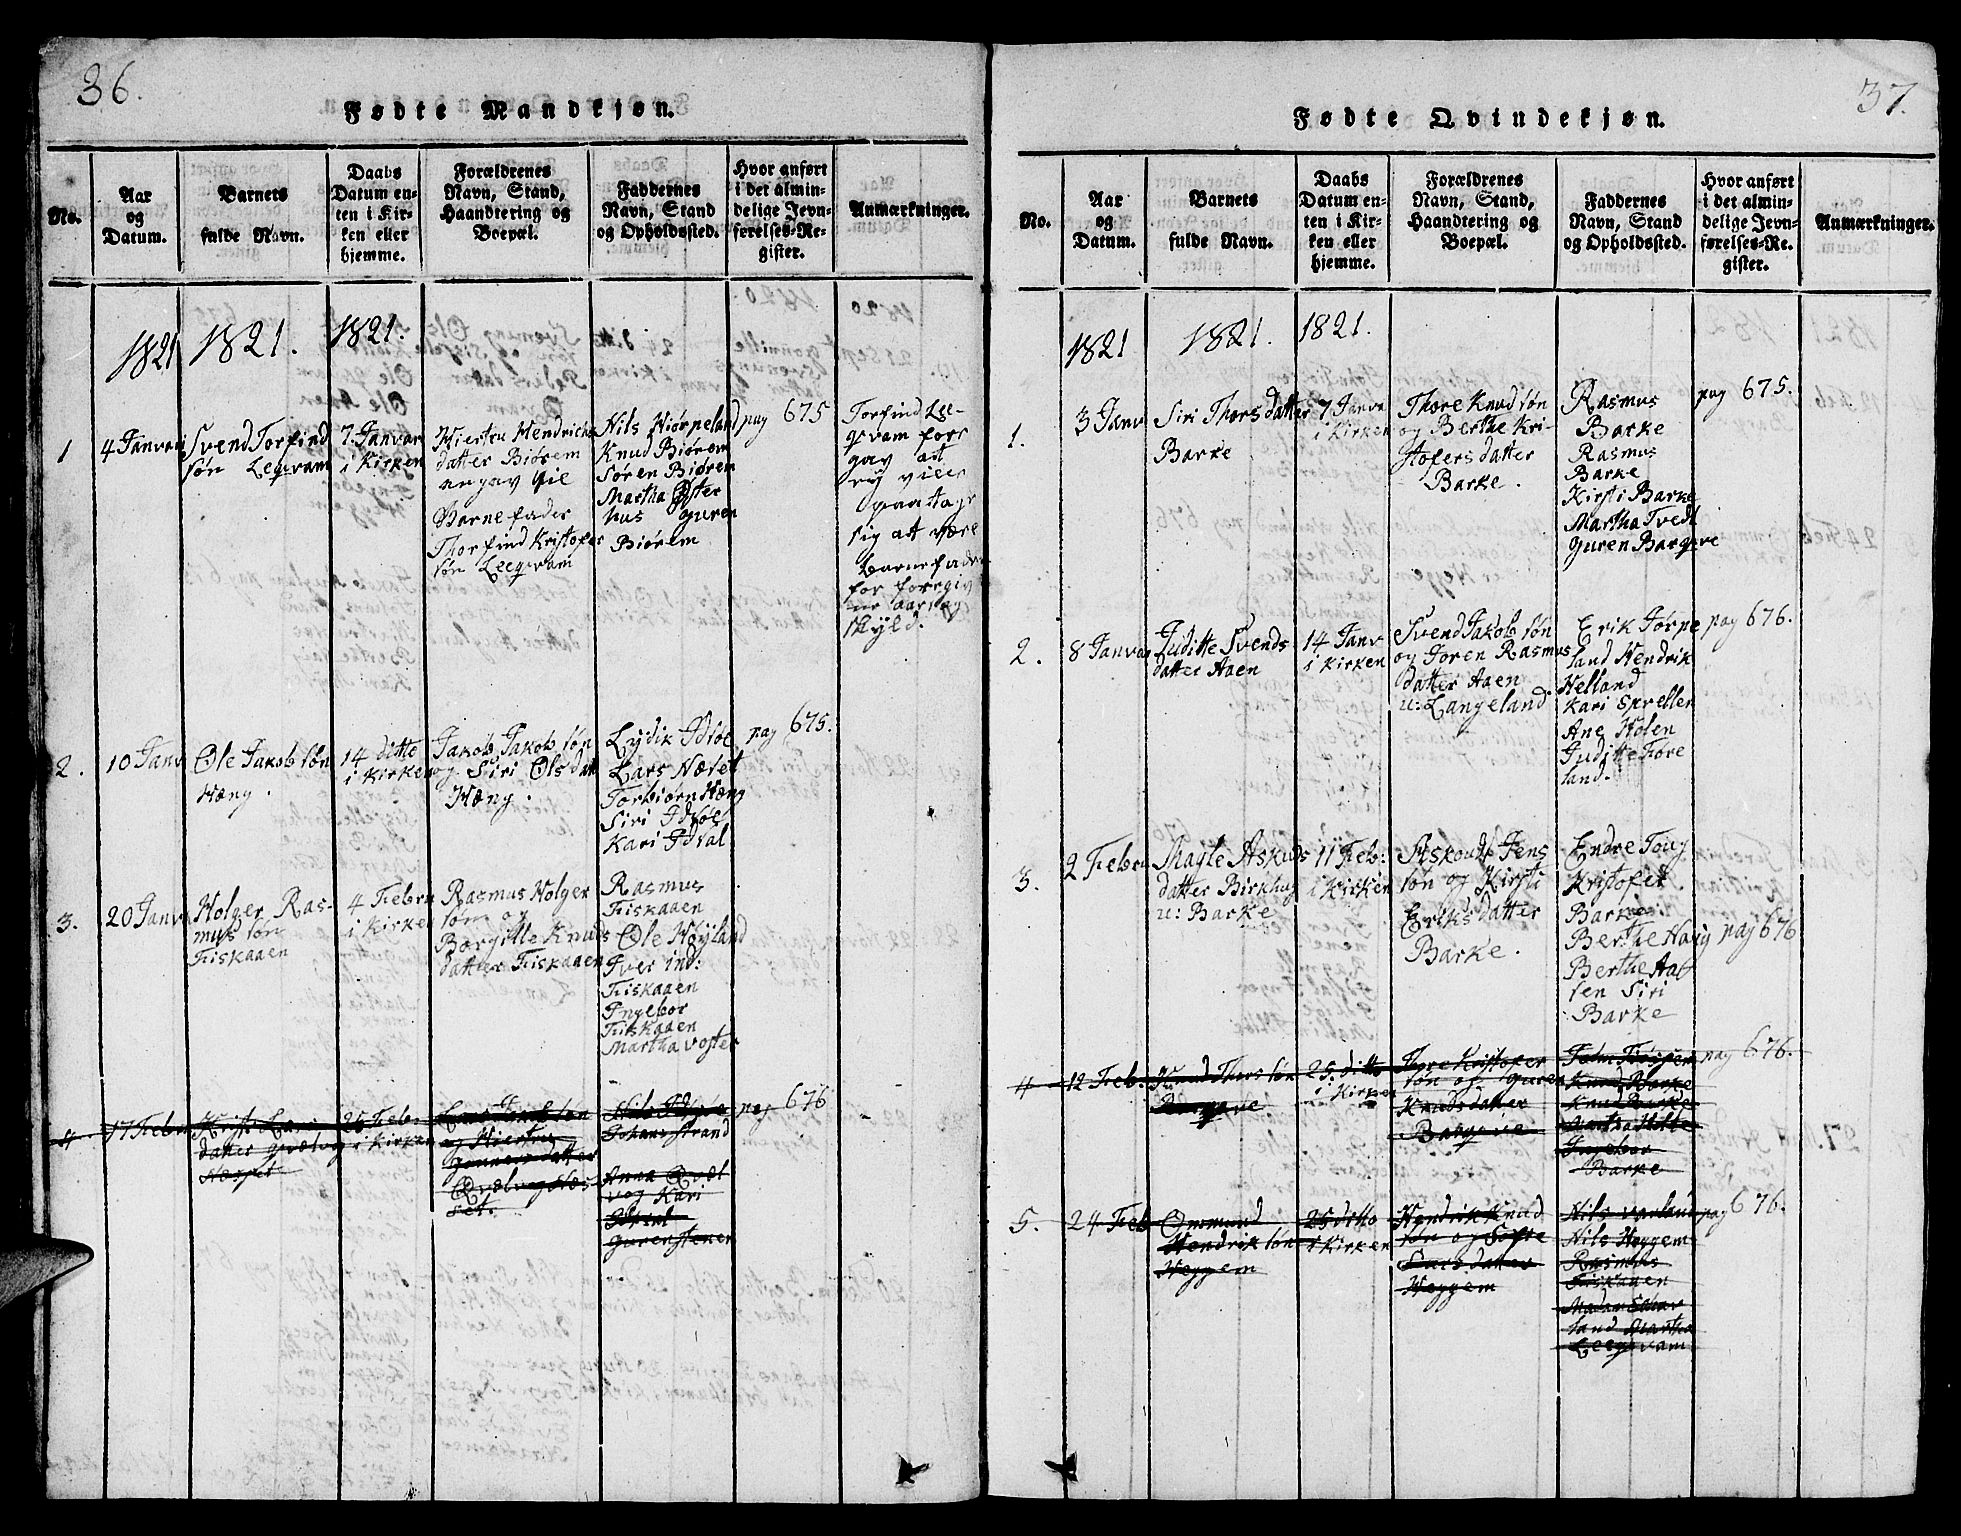 36.
Fødte Mandkjøn.
No.
Aar
og
Datum.
Barnets
fulde Navn.
Daabs
Datum en-
ten i Kir-
ken eller
hjemme.
Forældrenes
Navn, Stand,
Haandtering og
Boepæl.
Faddernes
Navn, Stand
og Opholdssted.
Hvor anført
i det almin-
delige Jevn-
førelses-Re-
gister.
Anmærkninger.
1821
1821.
1821.
1
4 Janvari
Svend Torfind
søn Leqvam
7. Janvar
i Kirken
Hiertru Hendrichs
datter Biørem
angav til
Barnefader
Thorfind Kristofer
søn Leeqvam
Nils Hiørpeland
Knud Biørem
Søren Biørem
Martha Øster
hus Guren
Biørem
pag 675
Torfind Lee-
qvam fors
gav at
ey viler
paatage
sig at være
barnefader
for foregiv
ne aarsag
skyld.
2.
10 Janv
Ole Jakob søn
Hæng.
14 ditto
i Kirken
Jakob Jakob søn
og Siri Ols dat
Hæng.
Lydik Idsøe
Lars Næset
Torbiørn Hæng
Siri Idsøe
Kari Idsal
pag 675.
3.
20 Janva
Holger Ras-
mus søn
Fiskaaen
4 Febru
i Kirken
Rasmus Holger
søn og
Borgille Knuds
datter Fiskaaen
Rasmus
Fiskaaen
Ole Høyland
Iver ind:
Fiskaaen
Ingebor
Fiskaaen
Martha voster
4
17 Febru
Kirsti Lars
datter Qvælvog
Næsset
25 Febr:
i Kirken
Lars Jacob søn
og Hiertru
Gunners datter
Qvælvog Næs-
set.
Nils Idsøe
Johans strand
Anna Qvæl
vog Kari
Idsal
Guren stener
pag 676
37.
Fødte Qvindekjøn.
No.
Aar
og
Datum.
Barnets
fulde Navn.
Daabs
Datum en-
ten i Kir-
ken eller
hjemme.
Forældrenes
Navn, Stand,
Haandtering og
Boepæl.
Faddernes
Navn, Stand
og Opholdssted.
Hvor anført
i det almin-
delige Jevn-
førelses-Re-
gister.
Anmærkninger.
1821
1821.
1821
1.
3 Janv
Siri Thors datter
Barke
7 Janva
i Kirken
Thore Knud søn
og Berthe Kri-
stofers datter
Barke.
Rasmus
Barke
Rasmus
Barke
Kirsti Barke
Martha Tvedt
Guren Bargeve
pag 675.
2.
8 Janvar
Juditte Svends
datter Aaen
14 Janv
i Kirken
Svend Jakob søn
og Joren Rasmus
datter Aaen
u: Langeland
Erik Tørpe
land Hendrik
Helland
Kari Sprellen
Ane Holen
Juditte Tore
land.
pag 676.
3.
2 Febru
Magle Askuds
datter Birkhus
u: Barke
11 Feb:
i Kirken
Askoud Jens
søn og Kirsti
Eriks datter
Barke.
Endre Toug
Kristofer
Barke
Berthe Haug
Berthe Aa
sen Siri
Barke
pag 676
4
12 Feb:
Knud Thors søn
Bargeve
25 ditto
i Kirken
Thore Kristofer
søn og Guren
Knuds datter
Bargeve
Knud Barke
Knud Barke
Martha Holte
Ingebor
Barke
pag 676.
5.
24 Feb
Ommund
Hendrik søn
Heggem
25 ditto
i Kirken
Hendrik Knud
søn og Sofie
Lars datter
Heggem
Nils varland
Nils Heggem
Rasmus
Fiskaaen
Madam Søhav
land Martha
Leeqvam
pag 676.